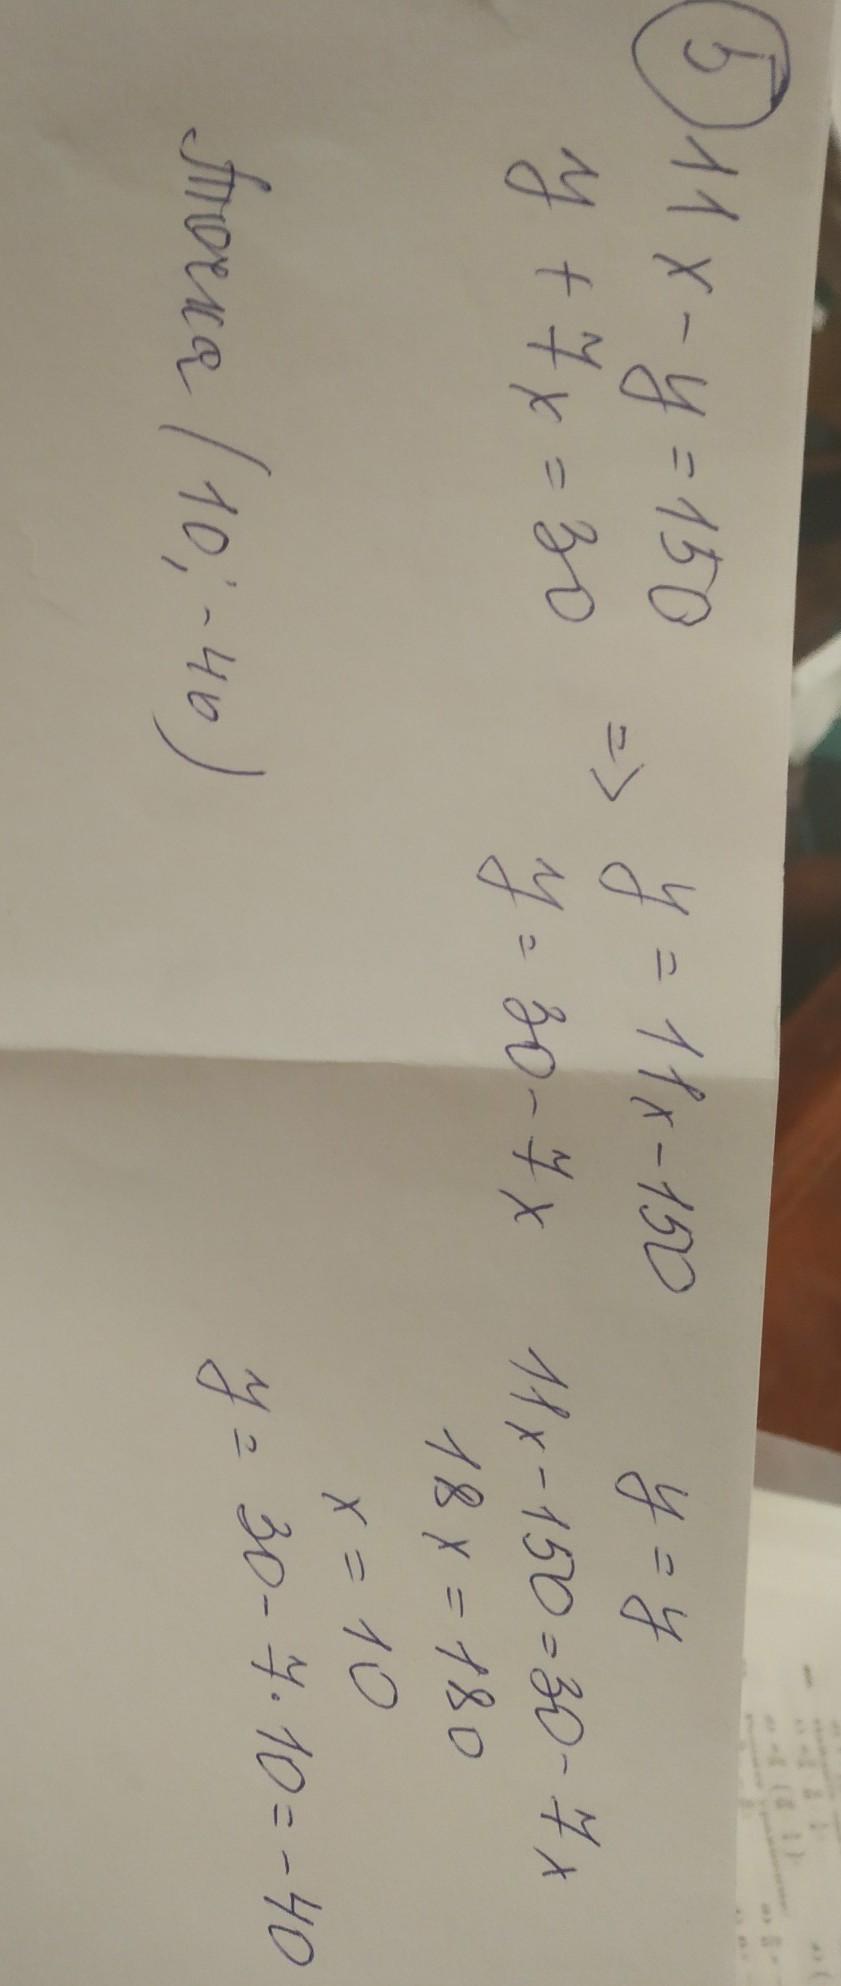 5 11x - y = 150
y + 7x = 30
=>
y = 11x - 150
y = 30 - 7x
y = y
11x - 150 = 30 - 7x
18x = 180
x = 10
y = 30 - 7 · 10 = -40
Точка (10; -40)